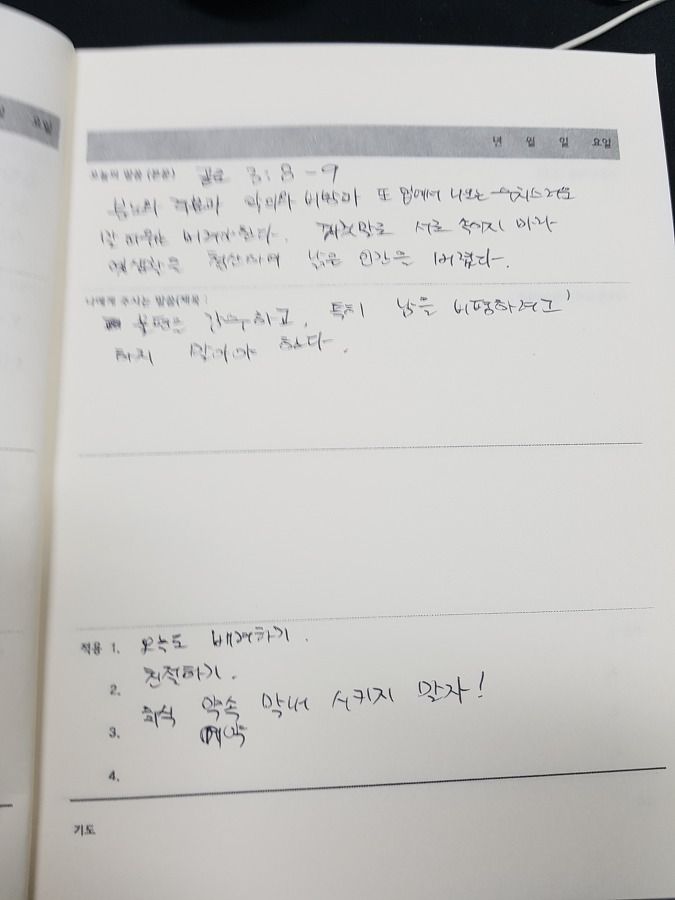 요일
년 월 일 요일
오늘의 말씀(본문) 골로 3:8-9
분노와 격분과 악의와 비방과 또 입에서 나오는 수치스러운
말 따위는 버려야 한다. 거짓말로 서로 속이지 마라
옛생활을 청산하여 낡은 인간을 버렸다.
나에게 주시는 말씀(제목)
불편을 감수하고, 특히 남을 비평하려고
하지 말아야 한다.
적용 1. 오늘도 배려하기.
친절하기.
2. 회식 약속 막 시키지 말자!
3. 예약
4.
기도